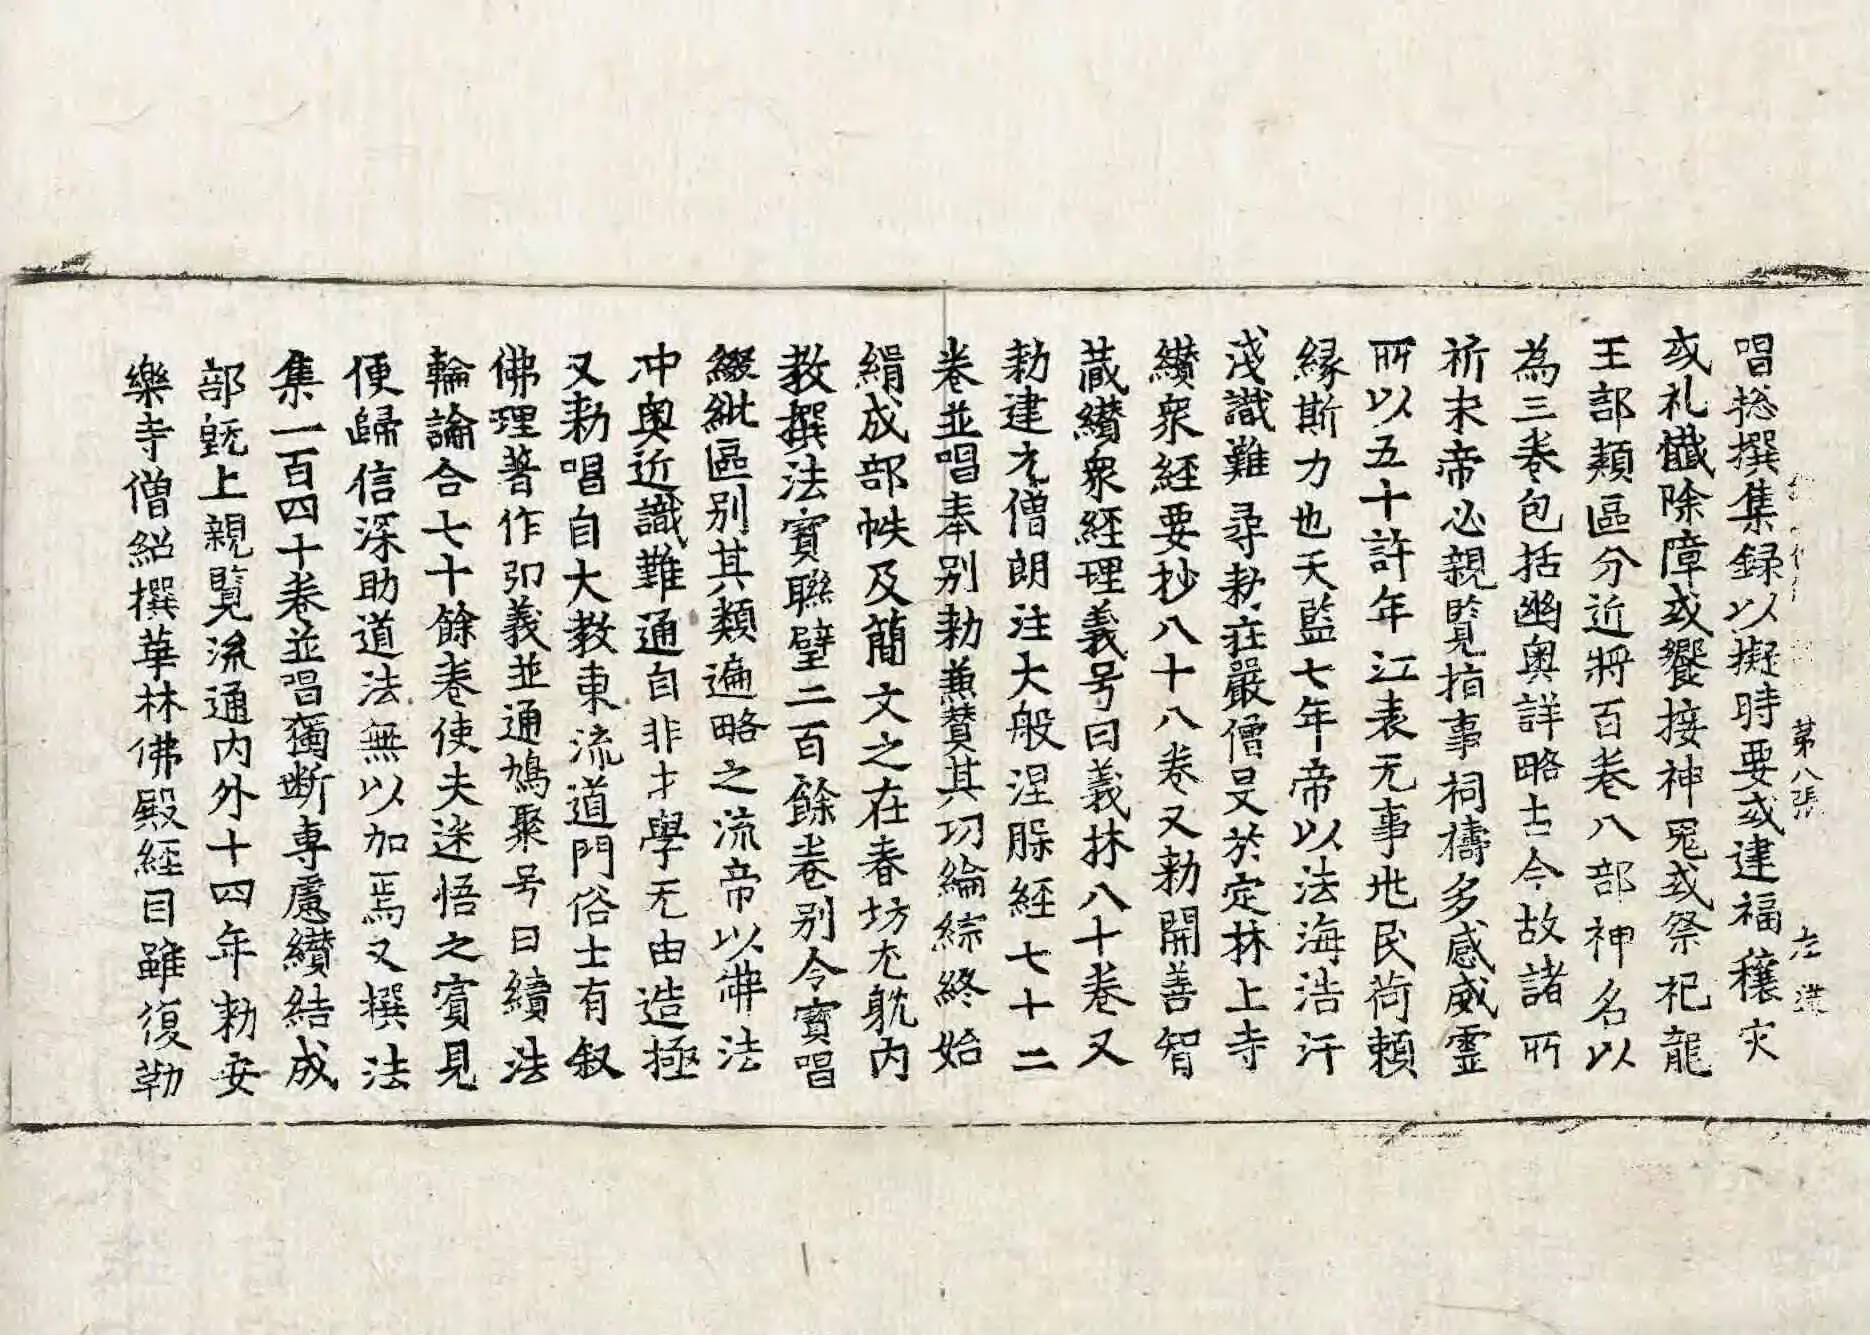 第八張
唱捴撰集録以擬時要或建福穰灾
或礼懺除障或饗接神鬼或祭祀龍
王部類區分近將百卷八部神名以
為三卷包括幽奥詳略古今故諸所
祈求帝必親覽指事祠禱多感威霊
所以五十許年江表无事兆民荷頼
縁斯力也天監七年帝以法海浩汗
淺識難尋勑莊嚴僧旻於定林上寺
纉衆經要抄八十八卷又勑開善智
蔵纉衆經理義号曰義林八十卷又
勑建元僧朗注大般涅脮經七十二
卷並唱奉别勑兼賛其功綸綜終始
緝成部帙及蕳文之在春坊尢躭内
教撰法寳聯璧二百餘卷别令寳唱
綴紕區别其類遍略之流帝以佛法
冲奥近識難通自非才學无由造極
又勑唱自大教東流道門俗士有叙
佛理著作弘義並通鳩聚号曰續法
輪論合七十餘卷使夫迷悟之賔見
便歸信深助道法無以加焉又撰法
集一百四十卷並唱獨断專慮纉結成
部旣上親覽流通内外十四年勑安
樂寺僧紹撰華林佛殿經目雖復勒